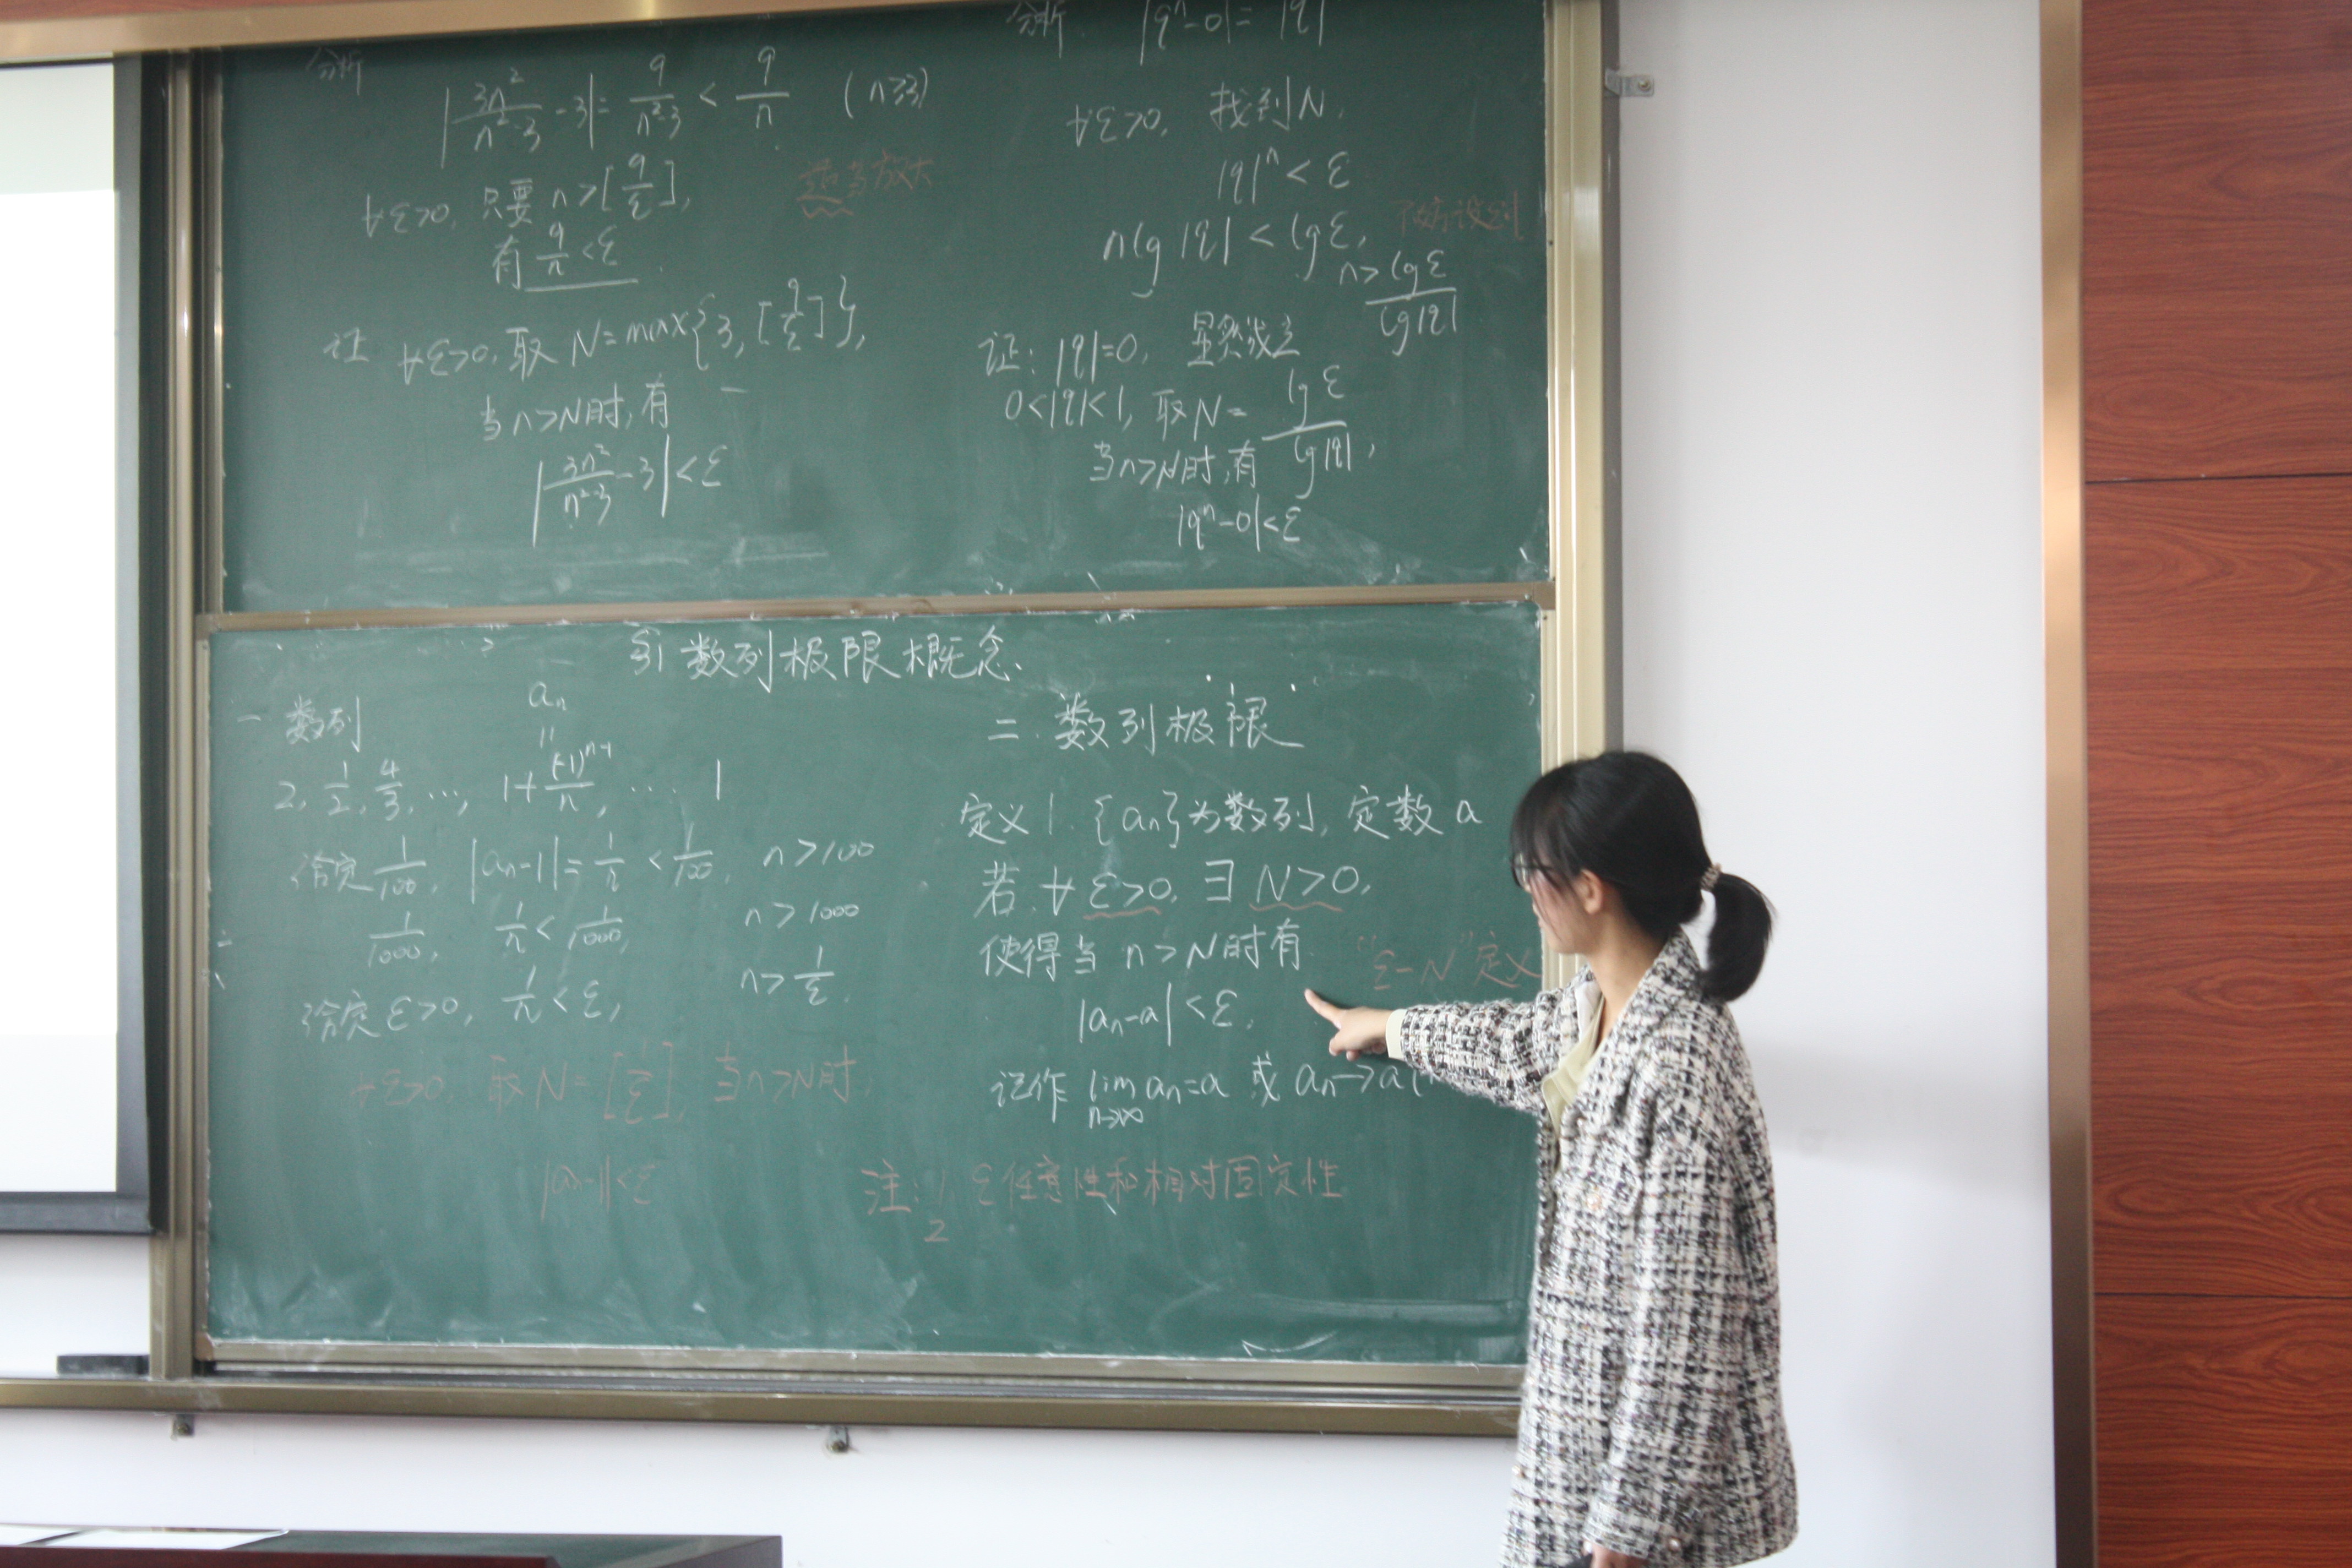 分析
|3n²/(n²-3) -3| = 9/(n²-3) < 9/n (n≥3)
∀ε>0, 只要 n>[9/ε],
适当放大
有 9/n <ε
证 ∀ε>0, 取 N=max{3, [9/ε]},
当n>N时,有
|3n²/(n²-3) -3|<ε
分析. |qⁿ-0|= |q|
∀ε>0, 找到N,
|q|ⁿ < ε
nlg|q| < lgε,
n> lgε/lg|q|
证: |q|=0, 显然成立
0<|q|<1, 取N= lgε/lg|q|,
当n>N时,有
|qⁿ-0|<ε
§1 数列极限概念.
一 数列
aₙ
=
2, 1/2, 4/3, …, 1+ (-1)ⁿ⁻¹/n, … 1
给定 1/100, |aₙ-1|= 1/n < 1/100, n>100
1/1000, 1/n < 1/1000, n>1000
给定 ε>0, 1/n < ε, n> 1/ε.
∀ε>0, 取N= [1/ε], 当n>N时,
|aₙ-1|<ε
二. 数列极限
定义1. {aₙ}为数列, 定数 a
若.∀ ε>0, ∃ N>0,
使得当 n>N时有
"ε-N"定义
|aₙ-a|<ε.
记作 lim n→∞ aₙ=a 或 aₙ→a(
注: 1 ε任意性和相对固定性
2